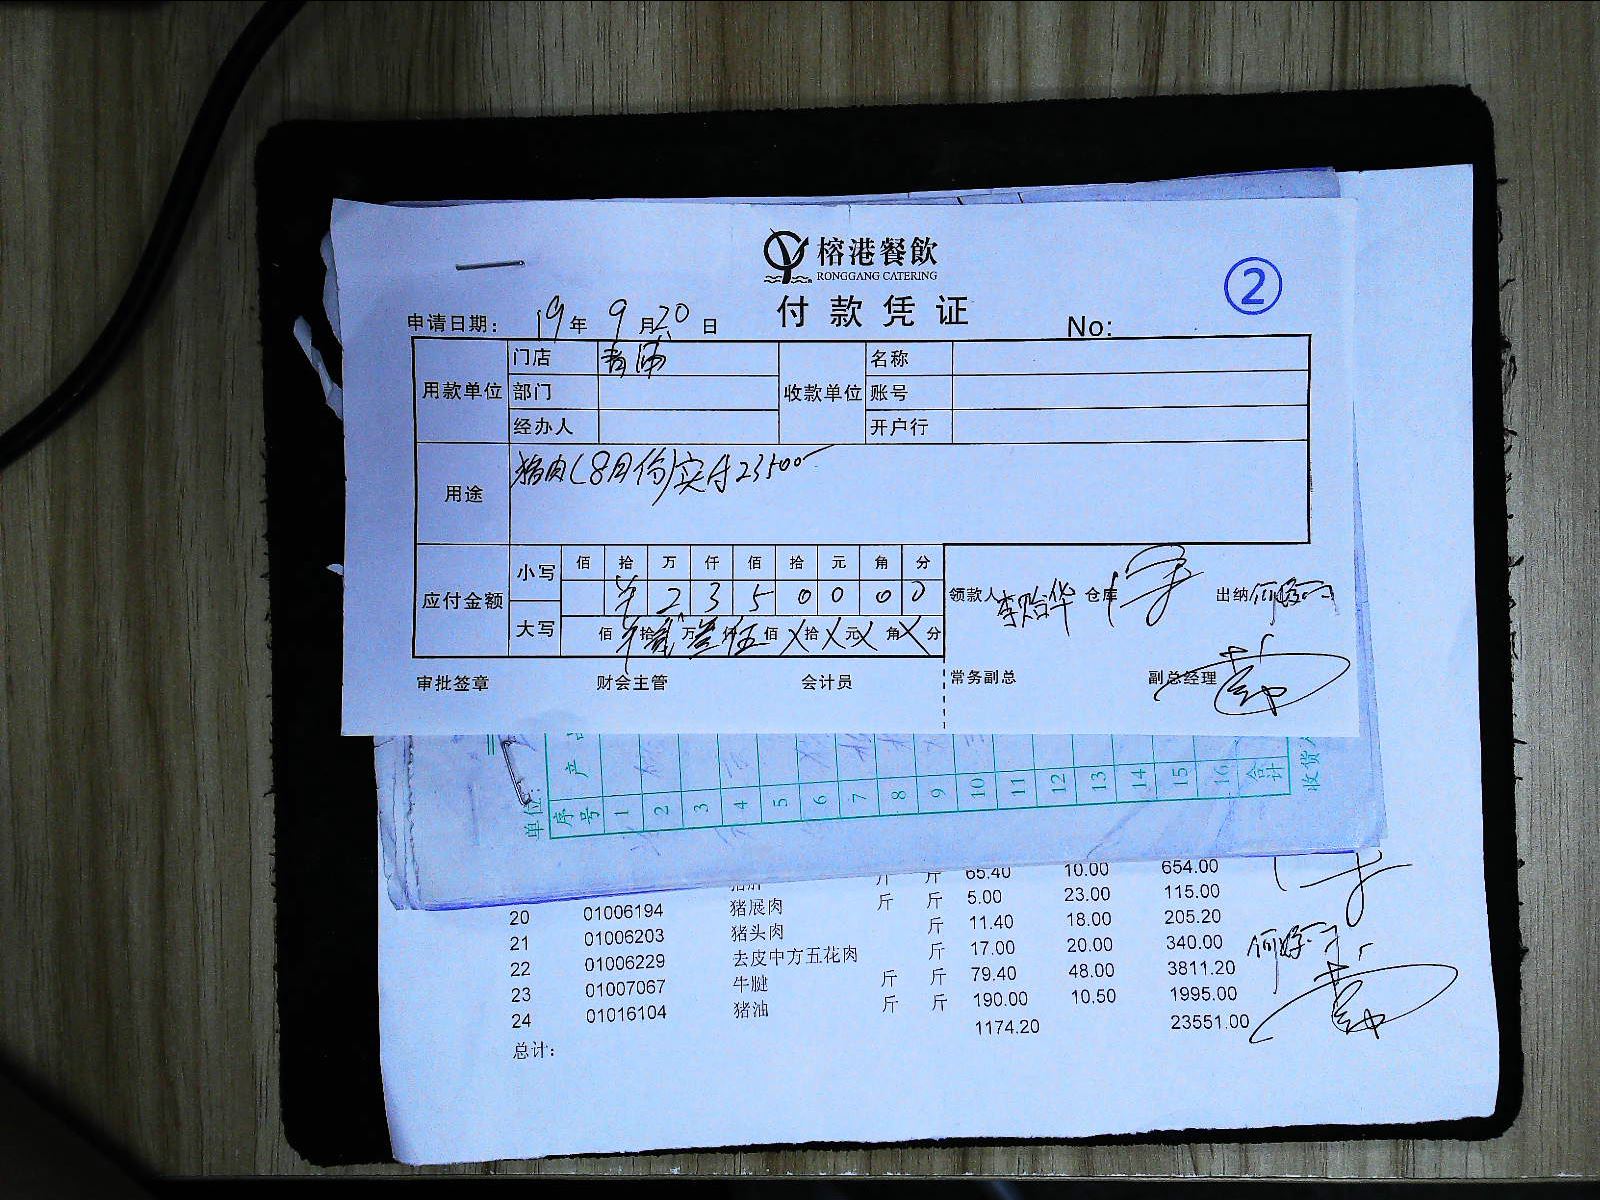 榕港餐飲
RONGGANG CATERING
②
付款凭证
申请日期: 19年 9月20日 No:
用款单位 门店 青浦 收款单位 名称
部门 账号
经办人 开户行
用途 猪肉(8月份)实付23500
应付金额 小写 佰 拾 万 仟 佰 拾 元 角 分
¥ 2 3 5 0 0 0 0
大写 佰 拾 贰万 叁仟 伍佰 拾 元 角 分
领款人 李贻华 仓库 出纳
审批签章 财会主管 会计员 常务副总 副总经理
单位:
序号 1 2 3 4 5 6 7 8 9 10 11 12 13 14 15 16 合计
产
收货
斤 斤 65.40 10.00 654.00
20 01006194 猪展肉 斤 斤 5.00 23.00 115.00
21 01006203 猪头肉 斤 11.40 18.00 205.20
22 01006229 去皮中方五花肉 斤 17.00 20.00 340.00
23 01007067 牛腱 斤 斤 79.40 48.00 3811.20
24 01016104 猪油 斤 斤 190.00 10.50 1995.00
总计: 1174.20 23551.00